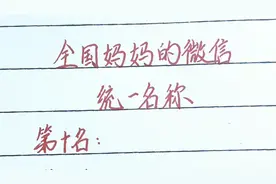 全国妈妈的微信
统一名称
第十名：